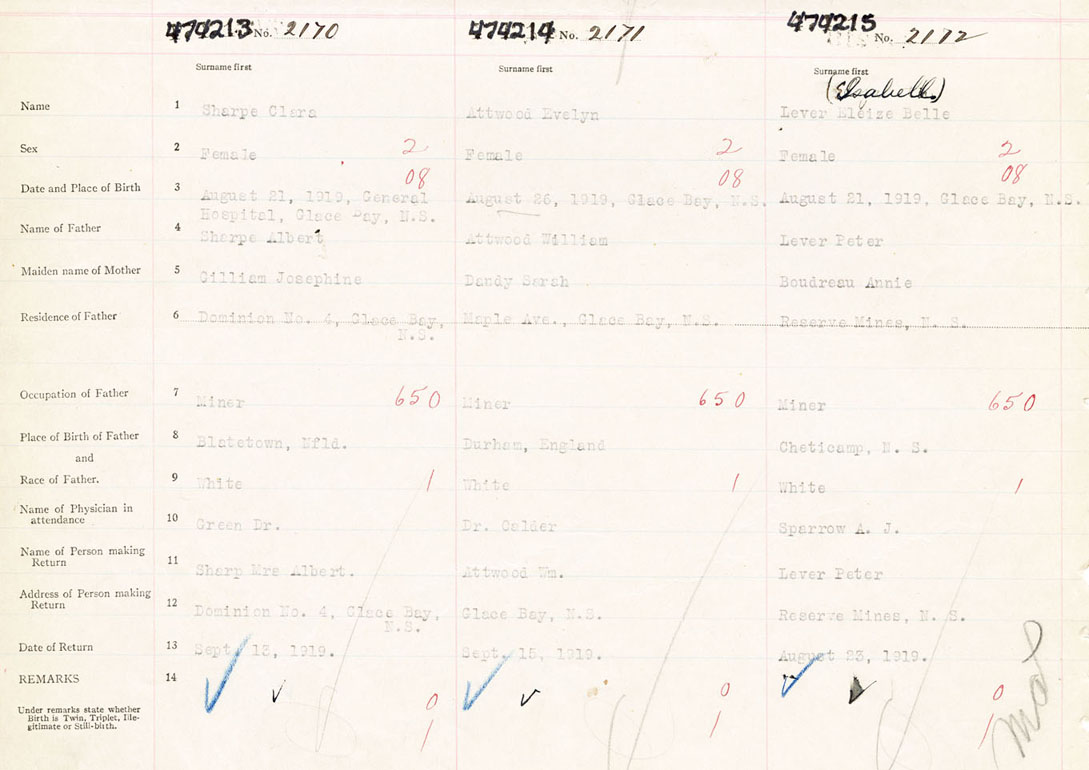 474213 No. 2170 474214 No. 2171 474215 No. 2172
Surname first Surname first Surname first
(Elizabeth)
Name 1 Sharpe Clara Attwood Evelyn Lever Eloize Belle
Sex 2 Female 2 Female 2 Female 2
08 08 08
Date and Place of Birth 3 August 21, 1919, General August 26, 1919, Glace Bay, N.S. August 21, 1919, Glace Bay, N.S.
Hospital, Glace Bay, N.S.
Name of Father 4 Sharpe Albert Attwood William Lever Peter
Maiden name of Mother 5 Gilliam Josephine Dandy Sarah Boudreau Annie
Residence of Father 6 Dominion No. 4, Glace Bay, Maple Ave., Glace Bay, N.S. Reserve Mines, N. S.
N.S.
Occupation of Father 7 Miner 650 Miner 650 Miner 650
Place of Birth of Father 8 Blatetown, Nfld. Durham, England Cheticamp, N. S.
and
Race of Father. 9 White 1 White 1 White 1
Name of Physician in
attendance 10 Green Dr. Dr. Calder Sparrow A. J.
Name of Person making
Return 11 Sharp Mrs Albert. Attwood Wm. Lever Peter
Address of Person making
Return 12 Dominion No. 4, Glace Bay, Glace Bay, N.S. Reserve Mines, N. S.
N.S.
Date of Return 13 Sept. 13, 1919. Sept. 15, 1919. August 23, 1919.
REMARKS 14
0 0 0
Under remarks state whether
Birth is Twin, Triplet, Ille-
gitimate or Still-birth.
1 1 1